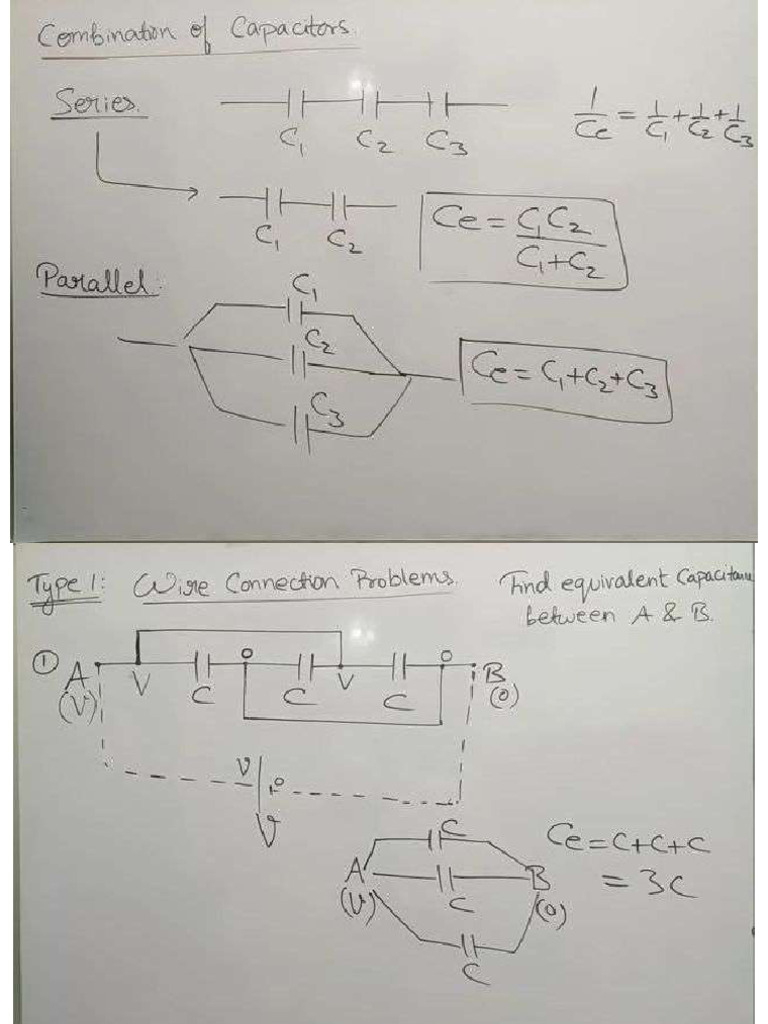 Combination of Capacitors.
Series.
C1 C2 C3
1/Ce = 1/C1 + 1/C2 + 1/C3
C1 C2
Ce = C1C2/C1+C2
Parallel:
C1
C2
C3
Ce = C1+C2+C3
Type 1: Wire Connection Problems. Find equivalent Capacitance
between A & B.
① A (V) V C 0 C V C 0 B (0)
V 0
V
C
A (V) C B (0)
C
Ce = C+C+C
= 3C